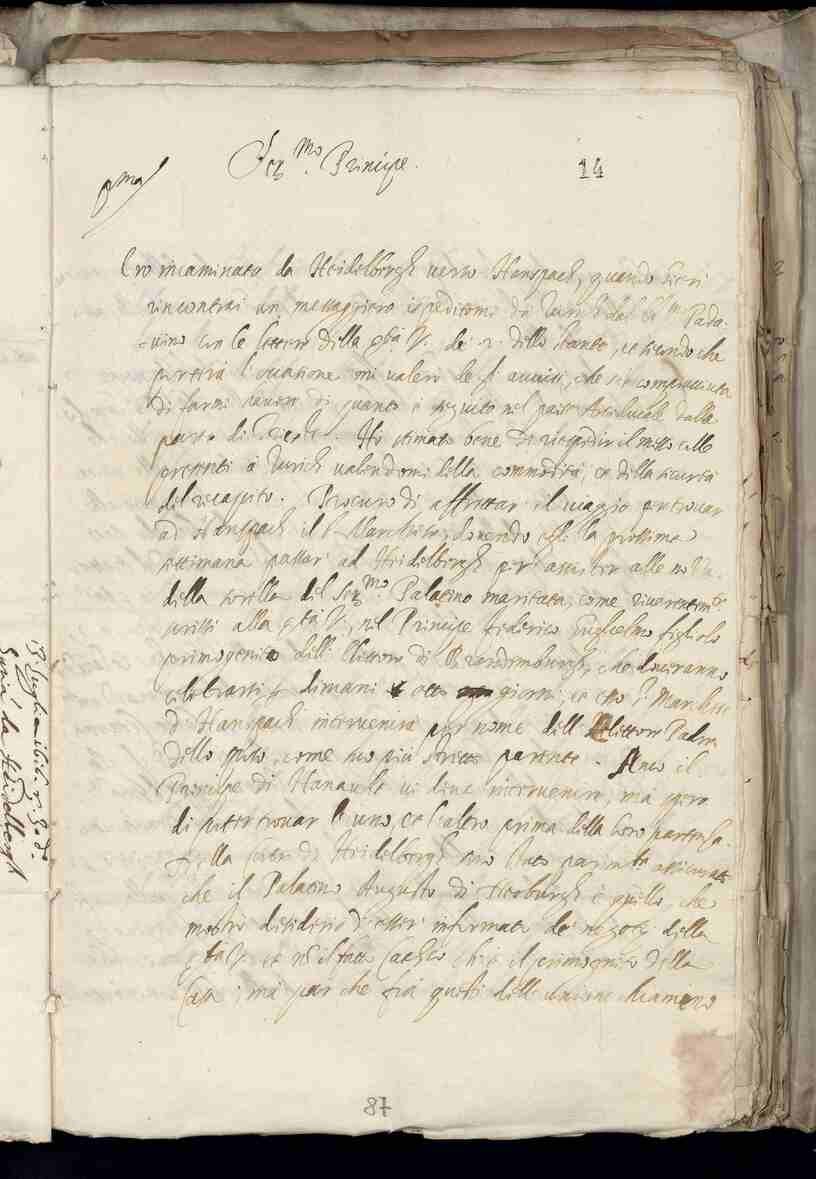 p.ma
Ser.mo Principe.
14
Ero incaminato da Heidelbergh verso Hanspach, quando hieri
rincontrai un messaggiero espeditomi da Zurich dal S.r Pada-
uino con le lettere della S.tà V. de 2 dello stante, et secondo che
portirà l'occasione mi valerò de gl'auuisi, che si è compiacciuta
di farmi hauer di quanto è seguito nel paese Arciducale dalla
parte di . Ho stimato bene di rispedir il messo colle
presenti à Zurich valendomi della commodità, et della sicurtà
del recapito. Procuro di affrettar il viaggio per trouar
ad Hanspach il S.r Marchese, douendo egli la prossima
settimana passar ad Heidelbergh per assister alle nozze
della sorella del Ser.mo Palatino maritata, come riuerentem.te
scrissi alla S.tà V., nel Principe Federico Guglielmo figliolo
primogenito dell'Elettore di Brandemburgh, che doueranno
celebrarsi dimani otto giorni; et esso S.r Marchese
d'Hanspach interuenirà per nome dell'Elettore Padre
dello sposo, come suo più stretto parente. Anco il
Principe di Hanault vi deue interuenire, ma spero
di poter trouar l'uno, et l'altro prima della loro partenza.
Nella Corte di Heidelbergh son stato parim.te assicurato
che il Palatino Augusto di Neoburgh è quello, che
mostrò desiderio d'esser informato de negotii della
S.tà V. et non il fratello, ch'è il primogenito della
Casa; ma par che già questi dell'Unione chiamino
19. luglio 1616. r. 30 d.o
Sauia da Heidelbergh
87